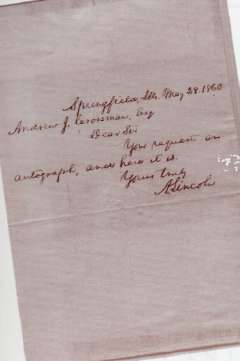 Springfield, Ills. May 28. 1860
Andrew J. Grossman, Esq
Dear Sir
Your request an
autograph, and here it is.
Yours truly
A. Lincoln